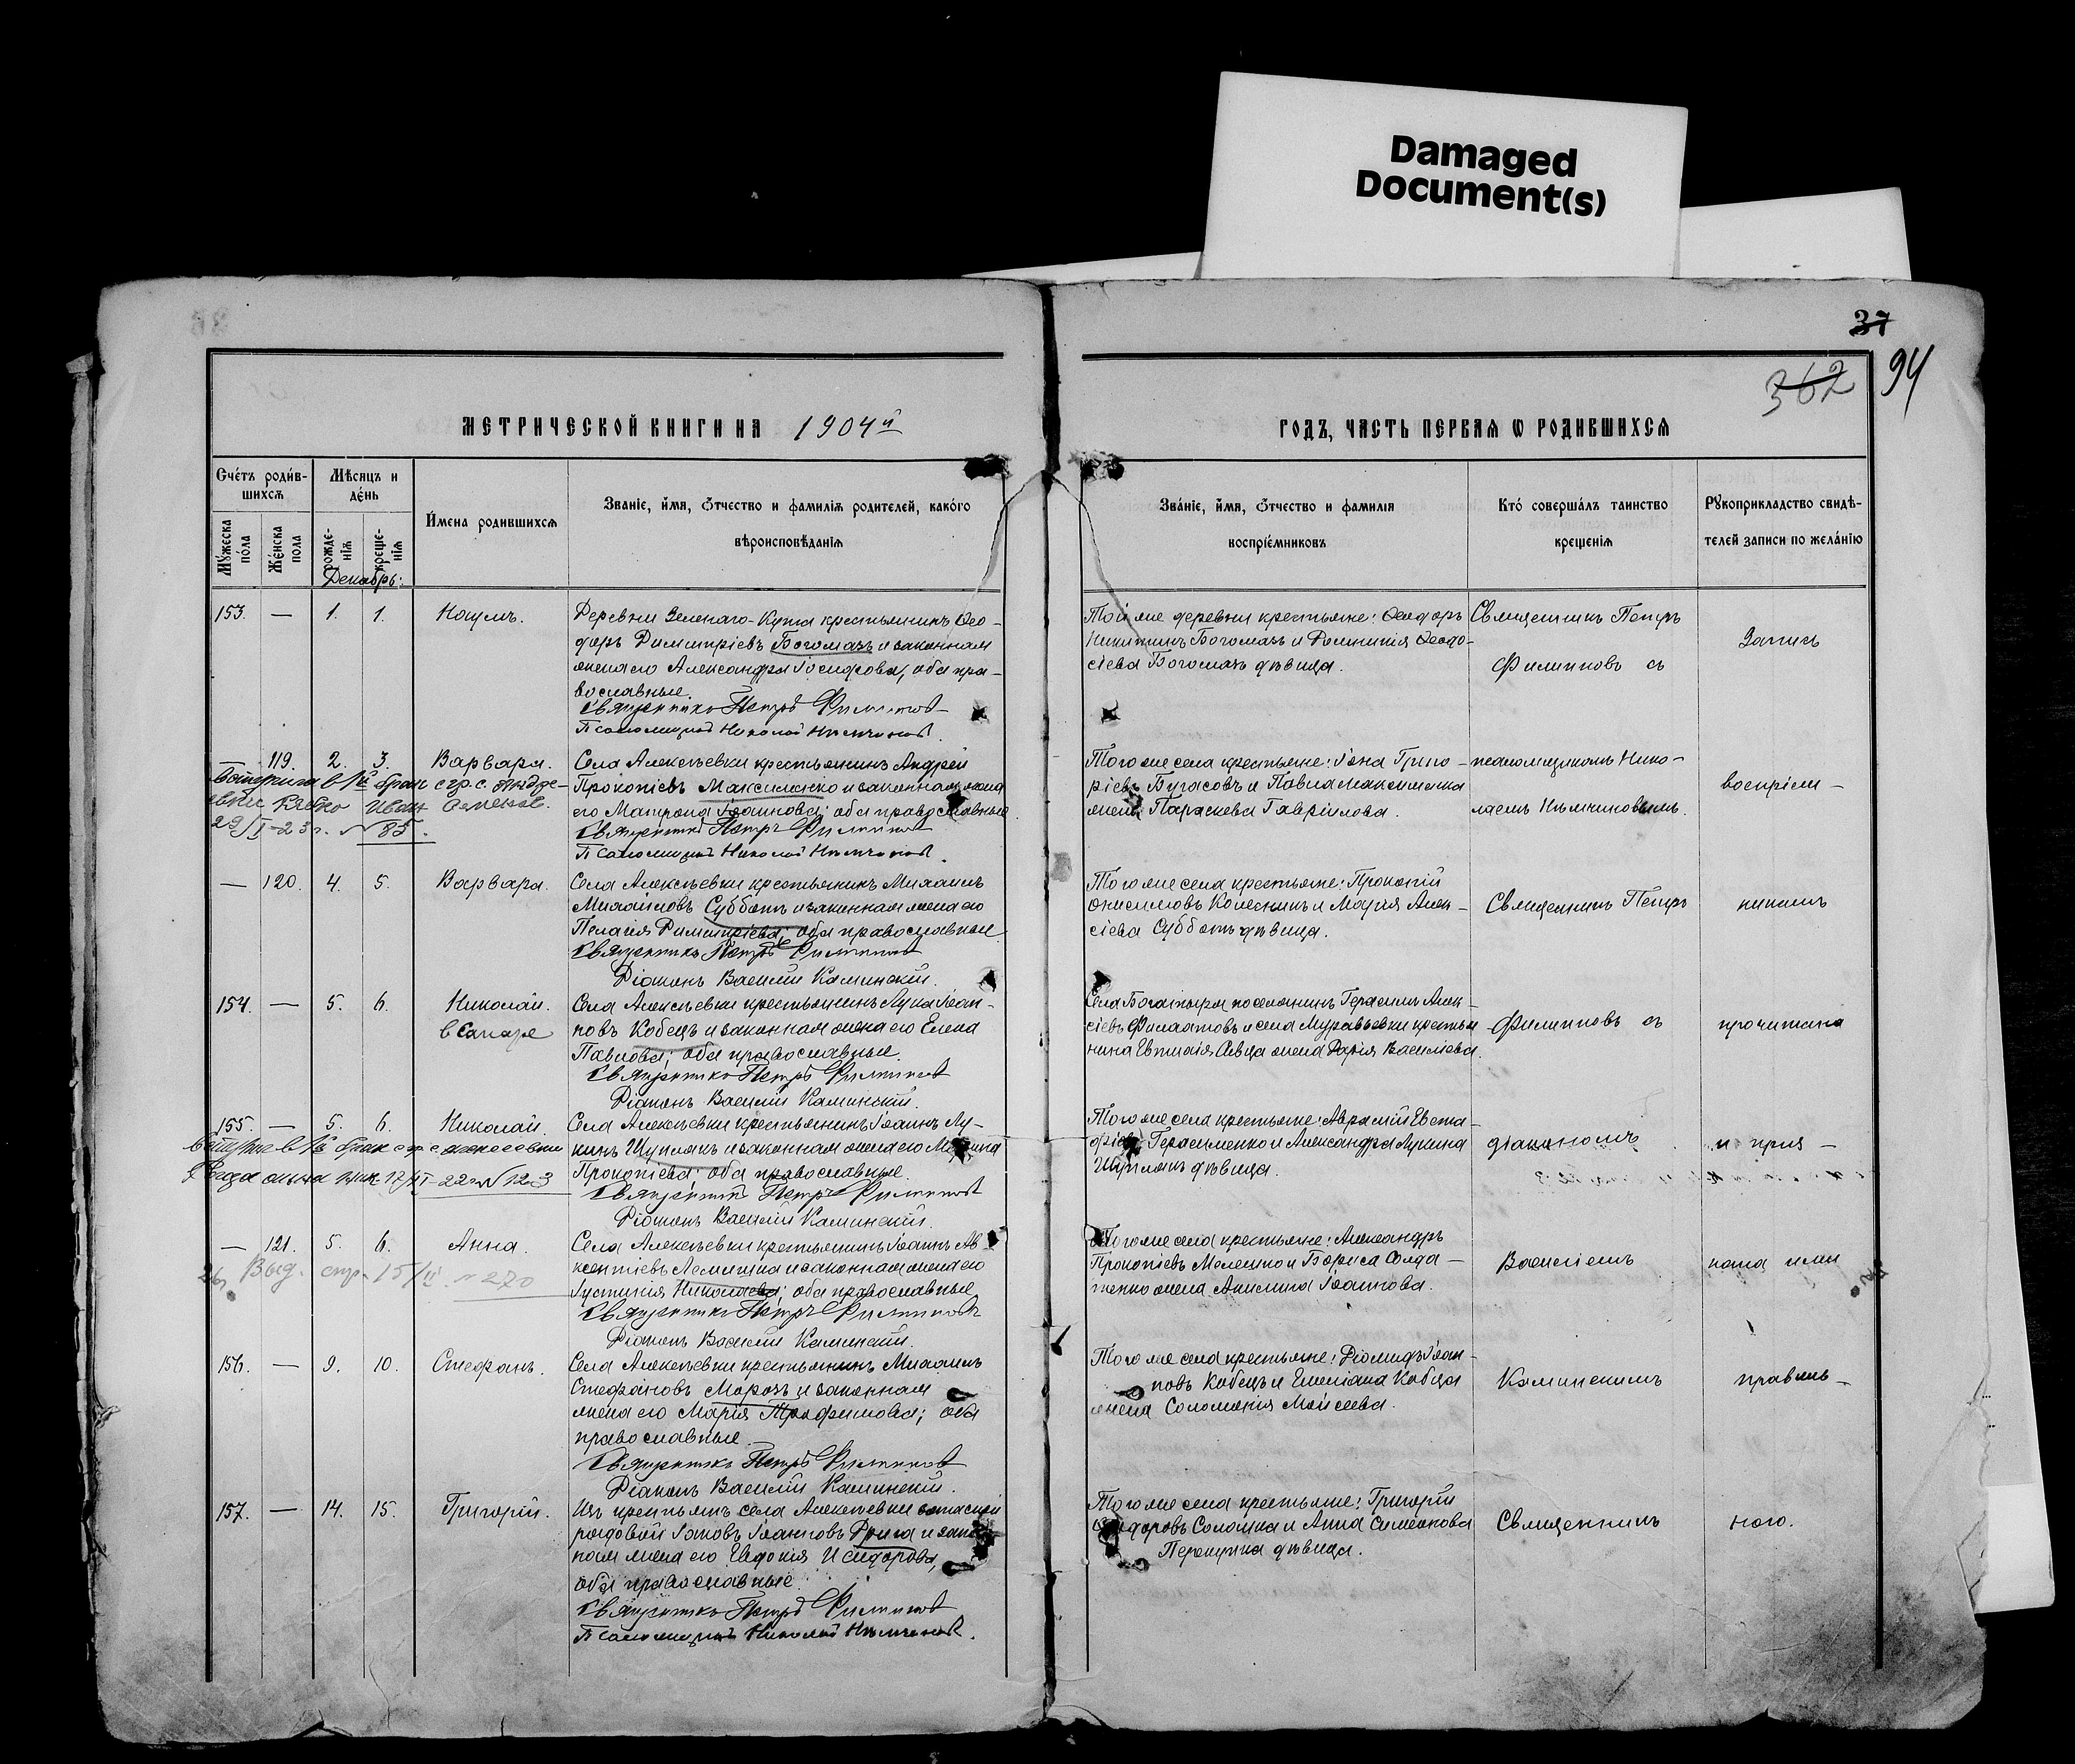 Damaged
Document(s)
37
362
94
МЕТРИЧЕСКОЙ КНИГИ НА 1904й
ГОДЪ, ЧАСТЬ ПЕРВАЯ Ѡ РОДИВШИХСЯ
Счетъ родив-
шихся
Мѣсяцъ и
день
Мужеска
пола
Женска
пола
рожде-
нія
креще-
нія
Имена родившихся
Званіе, имя, ѻтчество и фамилія родителей, какого
вѣроисповѣданія
Званіе, имя, ѻтчество и фамилія
воспріемниковъ
Кто совершалъ таинство
крещенія
Рꙋкоприкладство свидѣ-
телей записи по желанію
Декабрь:
153. — 1. 1. Наумъ.
Деревни Зеленаго-Кута крестьянинъ Ѳео-
доръ Димитріевъ Богомазъ и законная
жена его Александра Іосифова, оба пра-
вославные.
Священникъ Петръ Филиповъ
Псаломщикъ Николай Нѣмчиновъ.
Той же деревни крестьяне: Ѳеодоръ
Никитинъ Богомазъ и Домникія Ѳеодо-
сіева Богомазъ дѣвица.
Священникъ Петръ
Филиповъ съ
Запись
— 119. 2. 3. Варвара.
Села Алексѣевки крестьянинъ Андрей
Прокопіевъ Максименко и законная жена
его Матрона Іоаннова; оба православные.
Священникъ Петръ Филиповъ
Псаломщикъ Николай Нѣмчиновъ.
29/I-23г. № 85.
Того же села крестьяне: Іона Григо-
ріевъ Бугасовъ и Павла Максименка
жена Параскева Гавріилова.
псаломщикомъ Нико-
лаемъ Нѣмчиновымъ.
воспріем-
— 120. 4. 5. Варвара.
Села Алексѣевки крестьянинъ Михаилъ
Михаиловъ Субботъ и законная жена его
Пелагія Димитріева; оба православные
Священникъ Петръ Филиповъ
Діаконъ Василій Каминскій.
Того же села крестьяне: Прокопій
Онисимовъ Колесникъ и Марія Алек-
сіева Субботъ дѣвица.
Священникъ Петръ
никамъ
154. — 5. 6. Николай.
Села Алексѣевки крестьянинъ Лука Іоан-
новъ Кобецъ и законная жена его Елена
Павлова; оба православные.
Священникъ Петръ Филиповъ
Діаконъ Василій Каминскій.
Села Богатыря поселянинъ Герасимъ Алек-
сіевъ Филатовъ и села Муравьевки крестья
нина Евтихія Сивца жена Дарія Василіева.
Филиповъ съ
прочитана
155. — 5. 6. Николай.
Села Алексѣевки крестьянинъ Іоаннъ Лу-
кинъ Щуплякъ и законная жена его Марина
Прокопіева; оба православные.
Священникъ Петръ Филиповъ
Діаконъ Василій Каминскій.
Того же села крестьяне: Аврамій Евста-
фіевъ Герасименко и Александра Лукина
Щуплякъ дѣвица.
діакономъ
и приз-
— 121. 5. 6. Анна.
Села Алексѣевки крестьянинъ Іоаннъ Ав-
ксентіевъ Лемишка и законная жена его
Іустинія Николаева; оба православные
Священникъ Петръ Филиповъ
Діаконъ Василій Каминскій.
Того же села крестьяне: Александръ
Прокопіевъ Мелешко и Бориса Солда-
тенко жена Акилина Іоаннова.
Василіемъ
нана ими
156. — 9. 10. Стефанъ.
Села Алексѣевки крестьянинъ Михаилъ
Стефановъ Морозъ и законная
жена его Марія Трофимова; оба
православные
Священникъ Петръ Филиповъ
Діаконъ Василій Каминскій.
Того же села крестьяне: Діомидъ Іоан-
новъ Кобецъ и Емеліана Кобца
жена Соломонія Моисеева.
Каминскимъ
правиль-
157. — 14. 15. Григорій.
Изъ крестьянъ села Алексѣевки запасной
рядовой Іаковъ Іоанновъ Дрига и закон
ная жена его Евдокія Исидорова,
оба православные
Священникъ Петръ Филиповъ
Псаломщикъ Николай Нѣмчиновъ.
Того же села крестьяне: Григорій
Ѳеодоровъ Солошка и Анна Симеонова
дѣвица.
Священникъ
ною.